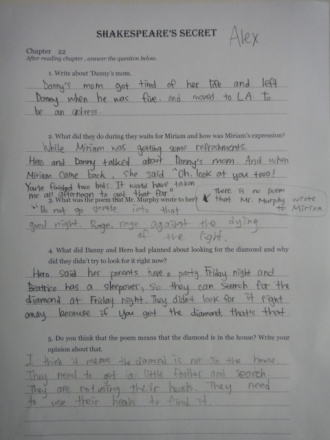 SHAKESPEARE'S SECRET
Alex
Chapter 22
After reading chapter , answer the question below.
1. Write about Danny's mom.
Danny's mom got tired of her life and left
Danny when he was five. and moved to LA to
be an actress.
2. What did they do during they waits for Miriam and how was Miriam's expression?
While Miriam was getting some refreshments.
Hero and Danny talked about Danny's mom. And when
Miriam came back, she said "Oh, look at you two!
You've finished two beds. It would have taken
me all afternoon to get that far"
3. What was the poem that Mr. Murphy wrote to her?
There is no poem
that Mr. Murphy wrote
Miriam
"Do not go gentle into that
good night. Rage, rage against the dying
of the light.
4. What did Danny and Hero had planned about looking for the diamond and why
did they didn't try to look for it right now?
Hero said her parents have a party Friday night and
Beatrice has a sleepover, so they can search for the
diamond at Friday night. They didn't look for it right
away because if you got the diamond, that's that
5. Do you think that the poem means that the diamond is in the house? Write your
opinion about that.
I think it means the diamond is not in the house.
They need to get a little further and search.
They are not using their heads. They need
to use their heads to find it.